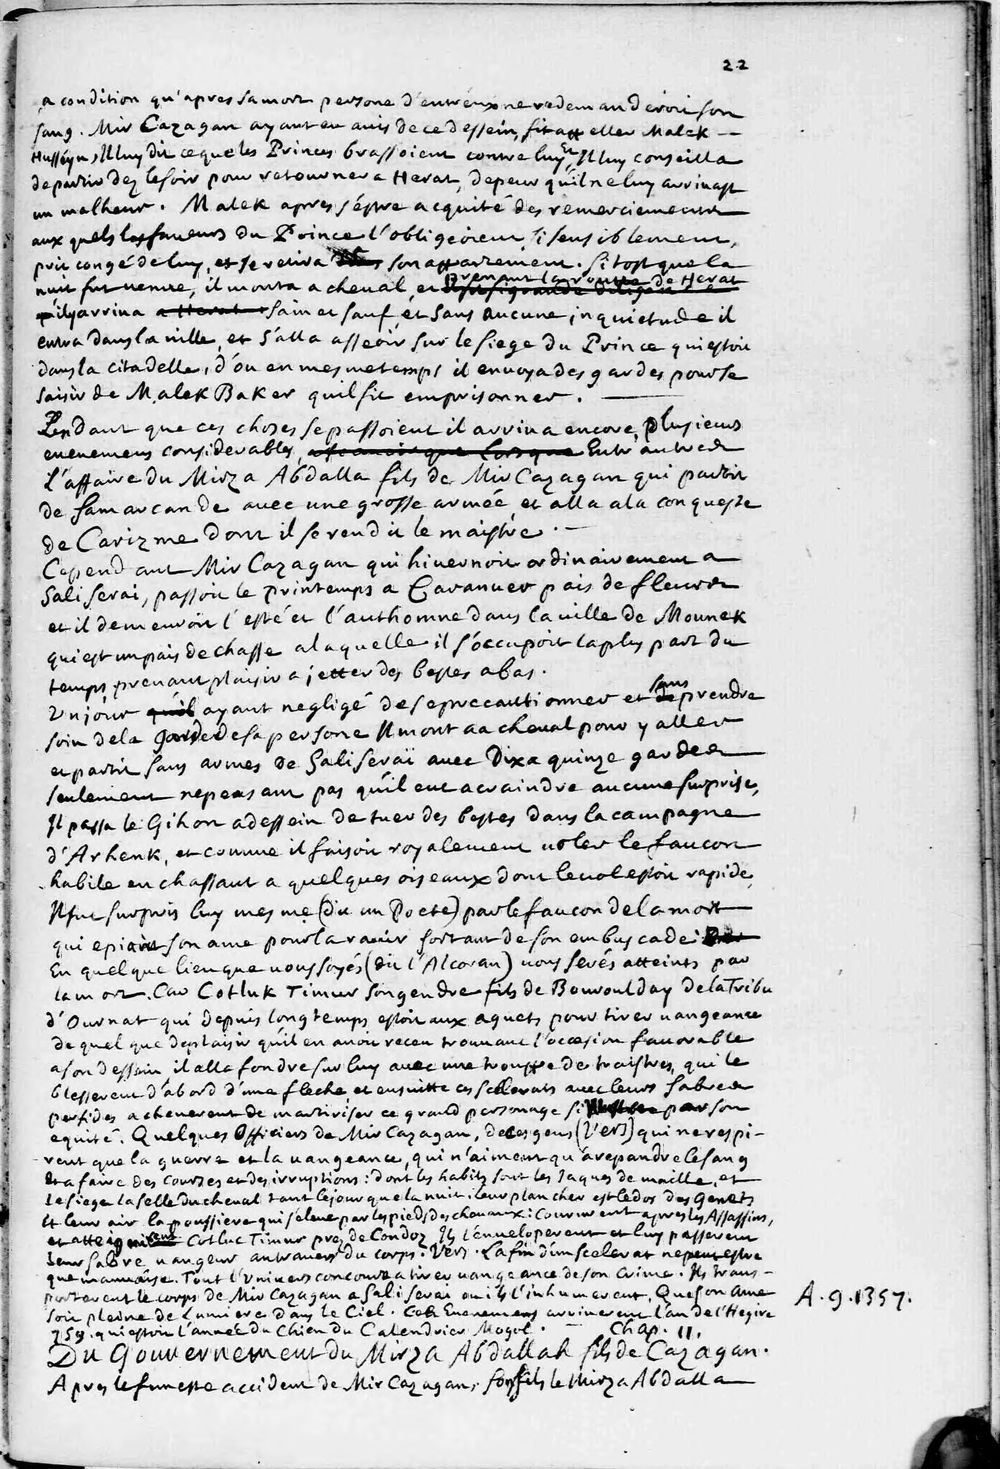 22
a condition qu'apres sa mort persone d'entréux ne redemanderoit son
sang. Mir Cazagan ayant eu auis de ce dessein, fit appeller Malek
Husséyn, Il luy dit ce que les Princes brassoient contre luy, Et Il luy conseilla
de partir dez le soir pour retourner a Herat, de peur qu'il ne luy arrivast
un malheur. Malek apres s'éstre acquité des remerciements
aux quels les faueurs du Prince l'obligeoient si sensiblement,
prit congé de luy, et se retira son appartement. Si tost que la
nuit fut venue, il monta a cheval, et prenant la route de Herat
il y arriva sain et sauf, et sans aucune inquietude il
entra dans la ville, et s'alla asseoir sur le siege du Prince qui estoit
dans la citadelle, d'ou en mesme temps il envoya des gardes pour se
saisir de Malek Baker qu'il fit emprisonner.
Pendant que ces choses se passoient il arriva encore, plusieurs
evenemens considerables, Entr'autres
l'affaire du Mirza Abdalla fils de Mir Cazagan qui partit
de Samarcande avec une grosse armée, et alla a la conqueste
de Carizme dont il se rendit le maistre.
Cependant Mir Cazagan qui hivernoit ordinairement a
Saliserai, passoit le printemps a Caranuer païs de fleurs
et il demeuroit l'esté et l'authomne dans la ville de Mounek
qui est un païs de chasse a laquelle il s'occupoit la plus part du
temps, prenant plaisir a jetter des bestes a bas.
Un jour ayant negligé de se precautionner et sans prendre
soin de la garde de sa persone Il monta a cheval pour y aller
et partit sans armes de Saliseraï avec dix a quinze gardes
seulement ne pensant pas qu'il eut a craindre aucune surprise,
Il passa le Gihon a dessein de tuer des bestes dans la campagne
d'Arhenk, et comme il faisoit royalement voler le faucon
habile en chassant a quelques oiseaux dont le vol estoit rapide,
Il fut surpris luy mesme (dit un Poete) par le faucon de la mort
qui epioit son ame pour la ravir sortant de son embuscade:
En quelque lieu que vous soyés (dit l'Alcoran) vous serés atteints par
la mort. Car Cotluk Timur son gendre fils de Bouroulday de la Tribu
d'Ournat qui depuis long temps estoit aux aguets pour tirer uangeance
de quelque deplaisir qu'il en auoit receu trouuant l'occasion fauorable
a son dessein il alla fondre sur luy avec une trouppe de traistres, qui le
blesserent d'abord d'une fleche, et ensuitte ces scelerats avec leurs sabres
perfides acheverent de martiriser ce grand personage si par son
equité. Quelques Officiers de Mir Cazagan, de ces gens (Vers) qui ne respi-
rent que la guerre et la uangeance, qui n'aiment qu'a repandre le sang
Et a faire des courses et des irruptions: dont les habits sont les Jaques de maille, et
le siege la selle du cheval tant le jour que la nuit: leur plancher est le dos des Genets
Et leur air la poussiere qui s'eleue par les pieds des cheuaux: Coururent apres les Assassins,
et Cotluc Timur prez de Condoz Ils l'enveloperent et luy passerent
leur sabre uangeur au trauers du corps. Vers. La fin d'un scelerat ne peut estre
que mauuaise. Tout l'Univers concourt a tirer uangeance de son crime. Ils trans-
porterent le corps de Mir Cazagan a Saliserai ou ils l'inhumerent, Que son Ame
soit pleine de Lumiere dans le Ciel. Ces Evenemens arriverent l'an de l'Hegire
759. qui estoit l'année du Chien du Calendrier Mogol.
A. 9. 1357.
Chap. 11.
Du Gouvernement du Mirza Abdallah fils de Cazagan.
Apres le funeste accident de Mir Cazagan, son fils le Mirza Abdalla